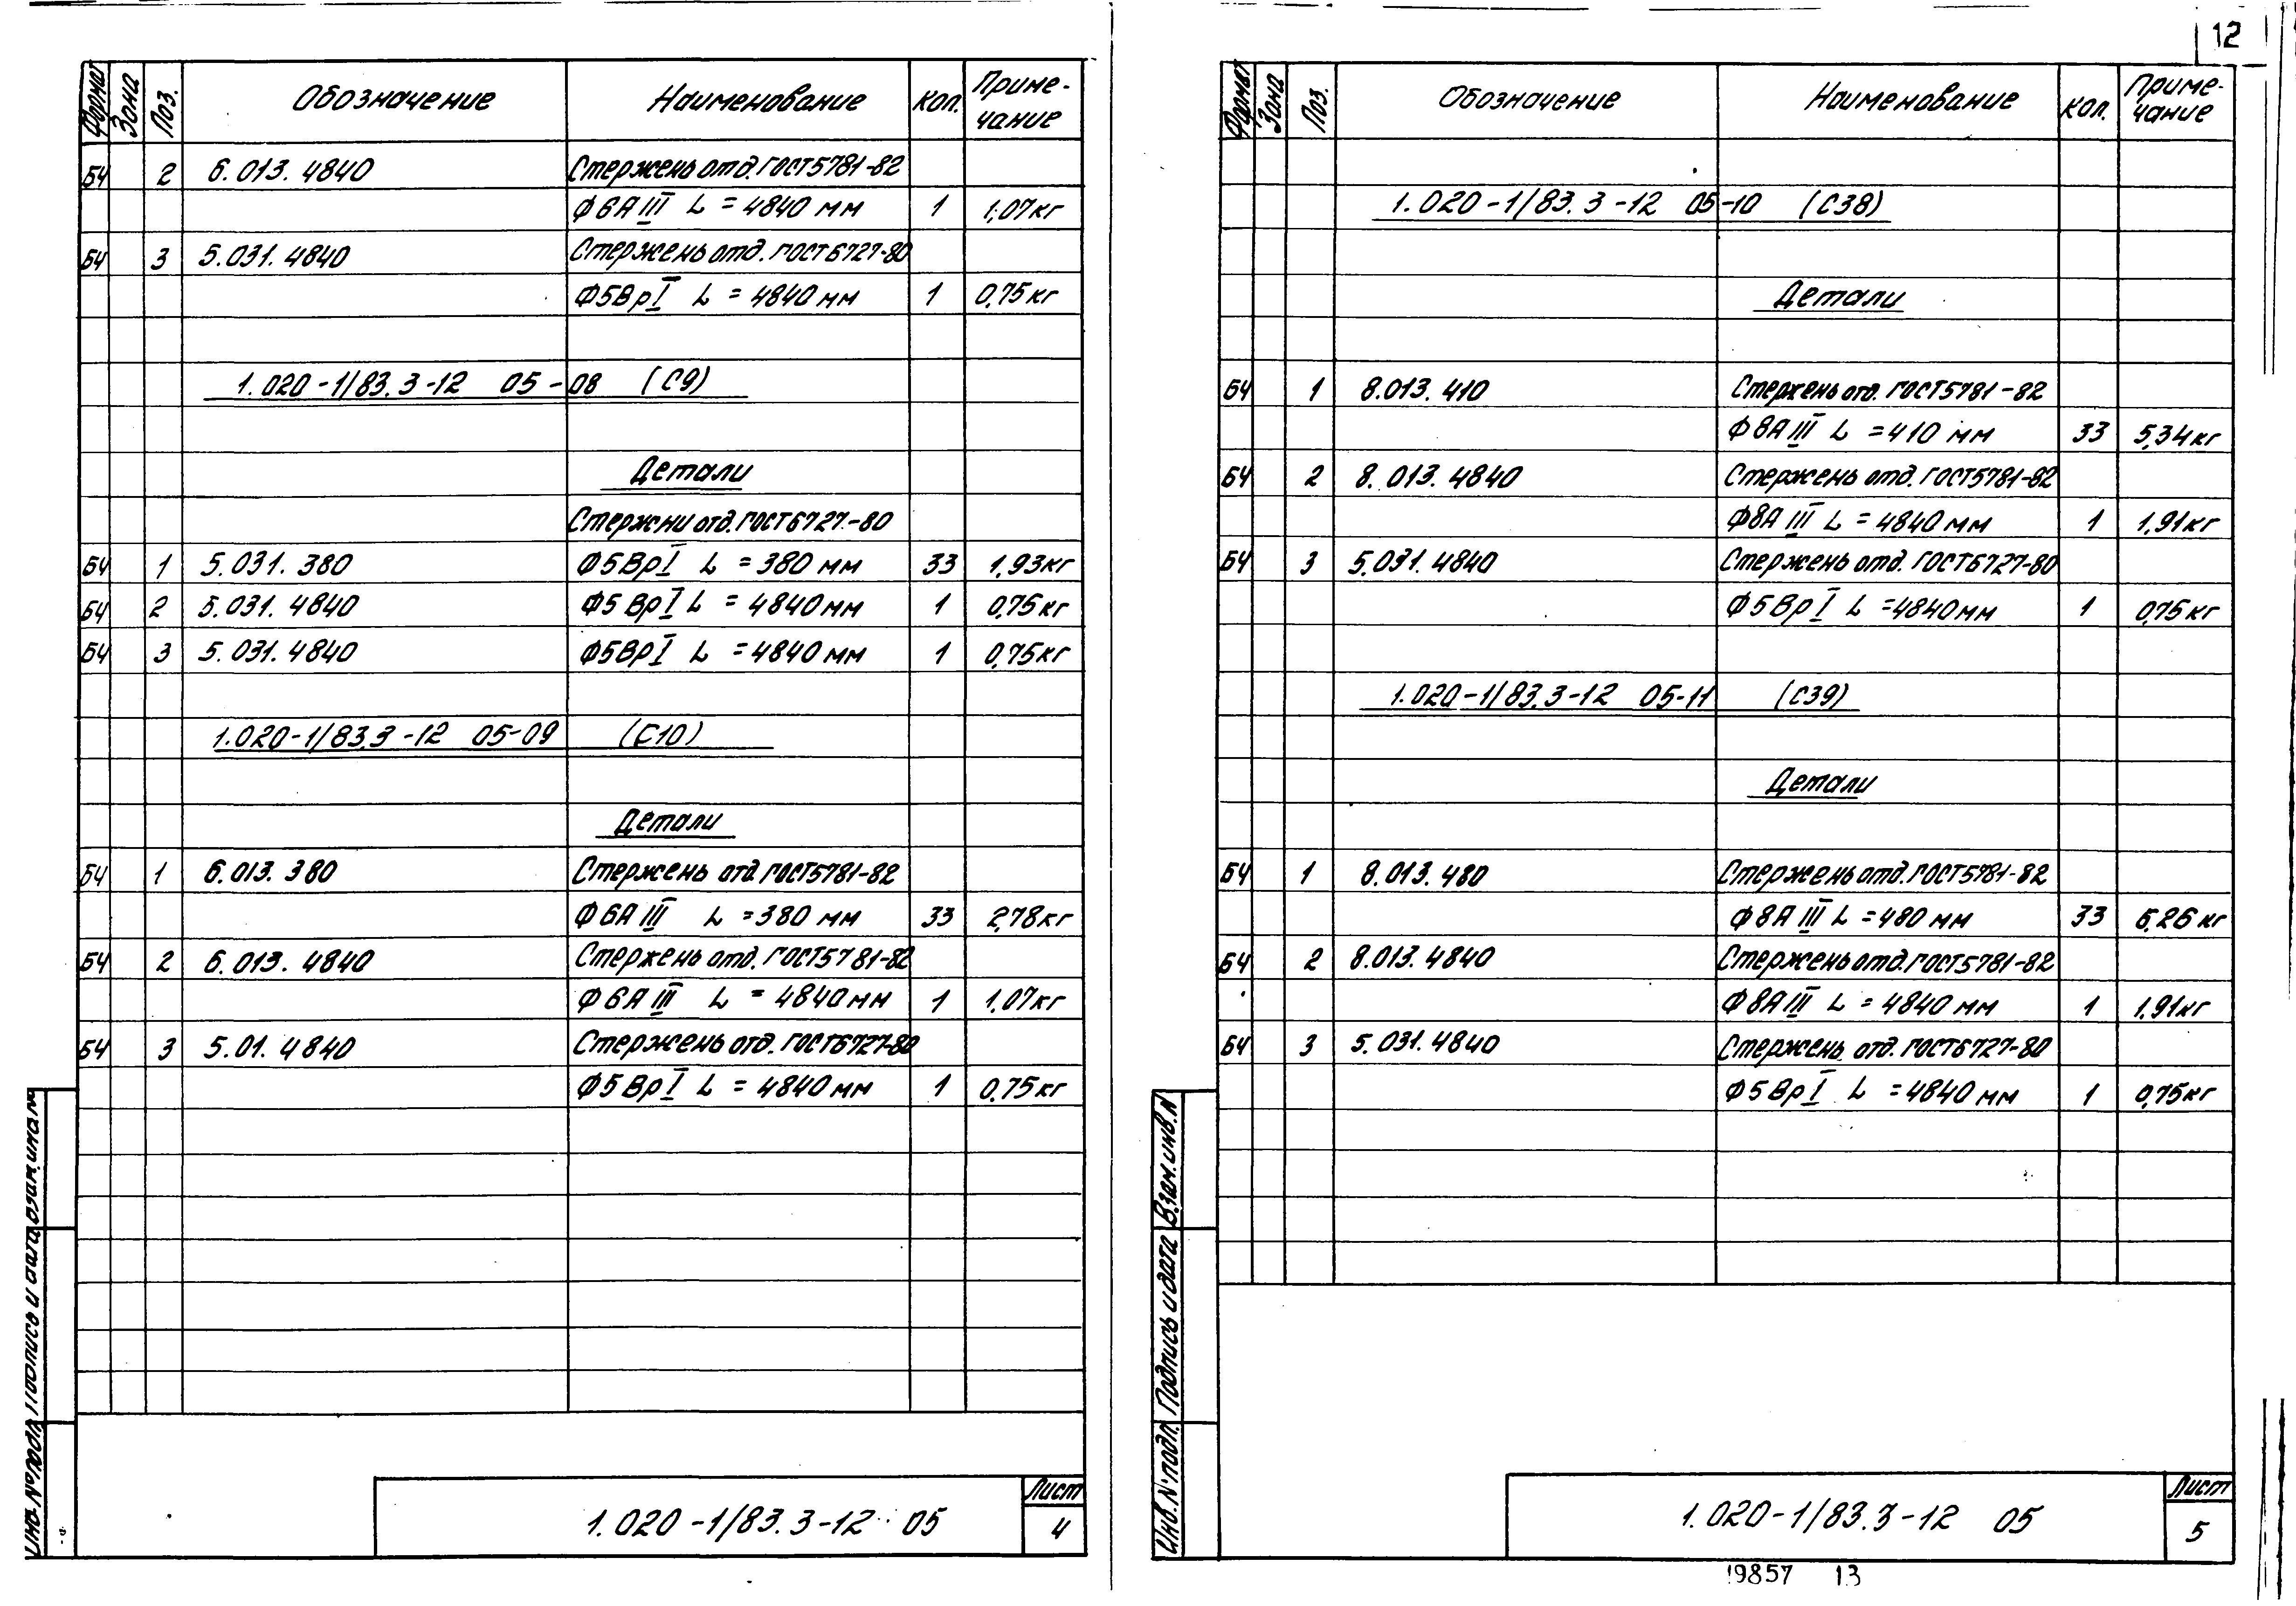 12
Формат Зона Поз. Обозначение Наименование Кол. Приме-
чание
БЧ 2 6.013.4840 Стержень отд. ГОСТ 5781-82
Ф6АIII L = 4840 мм 1 1,07 кг
БЧ 3 5.031.4840 Стержень отд. ГОСТ 6727-80
Ф5ВрI L = 4840 мм 1 0,75 кг
1.020-1/83.3-12 05-08 (С9)
Детали
Стержни отд. ГОСТ 6727-80
БЧ 1 5.031.380 Ф5ВрI L = 380 мм 33 1,93 кг
БЧ 2 5.031.4840 Ф5ВрI L = 4840 мм 1 0,75 кг
БЧ 3 5.031.4840 Ф5ВрI L = 4840 мм 1 0,75 кг
1.020-1/83.3-12 05-09 (С10)
Детали
БЧ 1 6.013.380 Стержень отд. ГОСТ 5781-82
Ф6АIII L = 380 мм 33 2,78 кг
БЧ 2 6.013.4840 Стержень отд. ГОСТ 5781-82
Ф6АIII L = 4840 мм 1 1,07 кг
БЧ 3 5.01.4840 Стержень отд. ГОСТ 6727-80
Ф5ВрI L = 4840 мм 1 0,75 кг
Инв. № подл. Подпись и дата Взам. инв. №
1.020-1/83.3-12 05
Лист
4
Формат Зона Поз. Обозначение Наименование Кол. Приме-
чание
1.020-1/83.3-12 05-10 (С38)
Детали
БЧ 1 8.013.410 Стержень отд. ГОСТ 5781-82
Ф8АIII L = 410 мм 33 5,34 кг
БЧ 2 8.013.4840 Стержень отд. ГОСТ 5781-82
Ф8АIII L = 4840 мм 1 1,91 кг
БЧ 3 5.031.4840 Стержень отд. ГОСТ 6727-80
Ф5ВрI L = 4840 мм 1 0,75 кг
1.020-1/83.3-12 05-11 (С39)
Детали
БЧ 1 8.013.480 Стержень отд. ГОСТ 5781-82
Ф8АIII L = 480 мм 33 6,26 кг
БЧ 2 8.013.4840 Стержень отд. ГОСТ 5781-82
Ф8АIII L = 4840 мм 1 1,91 кг
БЧ 3 5.031.4840 Стержень отд. ГОСТ 6727-80
Ф5ВрI L = 4840 мм 1 0,75 кг
Инв. № подл. Подпись и дата Взам. инв. №
1.020-1/83.3-12 05
Лист
5
19857 13